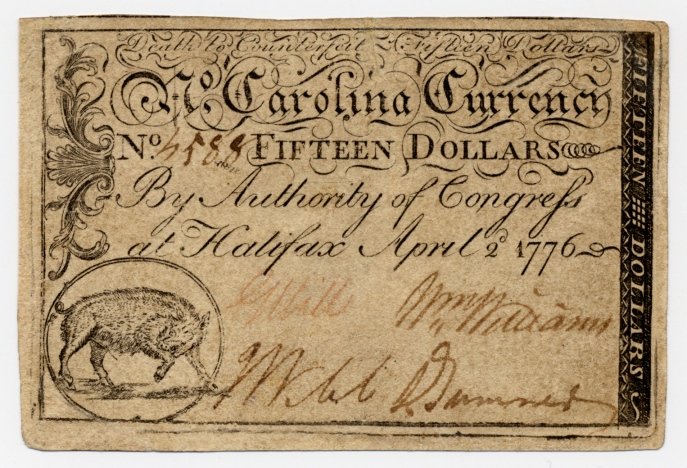 Death to Counterfeit Fifteen Dollars
No. Carolina Currency
No. 4588 FIFTEEN DOLLARS
By Authority of Congress
at Halifax April 2d 1776
Wm Williams
J Webb
FIFTEEN DOLLARS